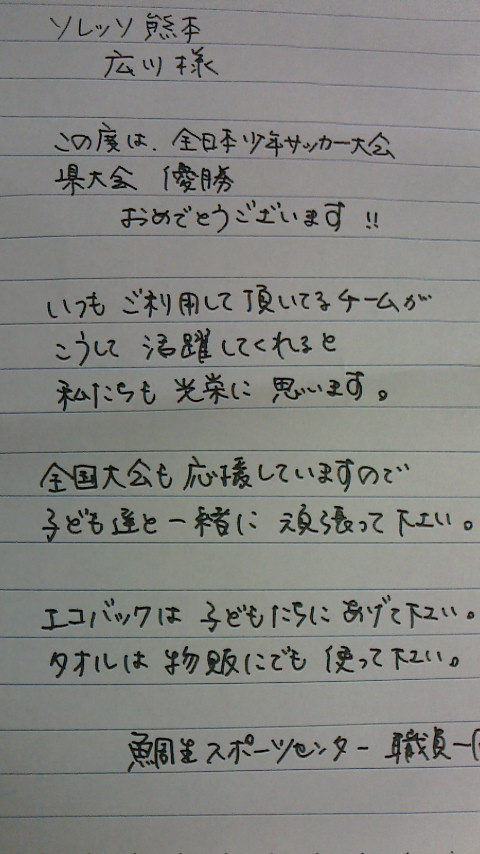 ソレッソ熊本
広川様
この度は、全日本少年サッカー大会
県大会 優勝
おめでとうございます!!
いつも ご利用して頂いてるチームが
こうして 活躍してくれると
私たちも 光栄に 思います。
全国大会も 応援していますので
子ども達と一緒に 頑張って下さい。
エコバックは 子どもたちに あげて下さい。
タオルは 物販にでも 使って下さい。
鯛生スポーツセンター 職員一